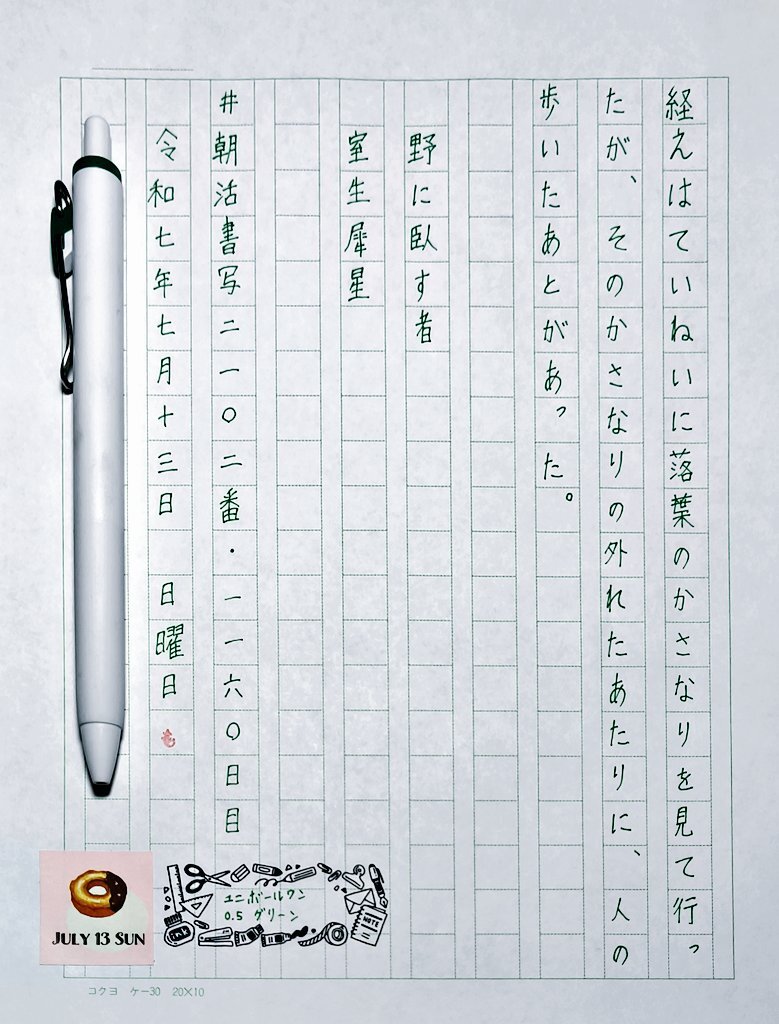 経えはていねいに落葉のかさなりを見て行っ
たが、そのかさなりの外れたあたりに、人の
歩いたあとがあった。
野に臥す者
室生犀星
#朝活書写二一〇二番・一一六〇日目
令和七年七月十三日 日曜日 も
JULY 13 SUN
ユニボールワン
0.5 グリーン
NOTE
コクヨ ケー30 20×10